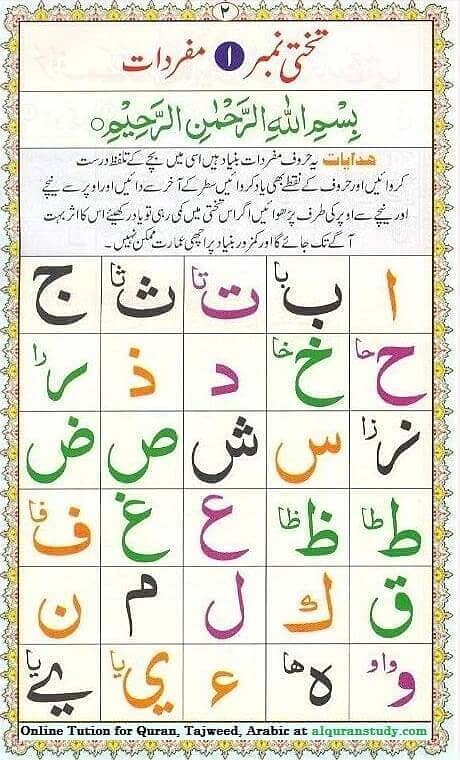 ٢
تختی نمبر ١ مفردات
بِسْمِ اللهِ الرَّحْمٰنِ الرَّحِيْمِ ○
ھدایات یہ حروف مفردات بنیاد ہیں اسی میں بچے کے تلفظ درست
کروائیں اور حروف کے نقطے بھی یاد کروائیں سطر کے آخر سے دائیں اور اوپر سے نیچے
اور نیچے سے اوپر کی طرف پڑھوائیں اگر اس تختی میں کمی رہی تو یاد رکھیئے اس کا اثر بہت
آگے تک جائے گا اور کمزور بنیاد پر اچھی عمارت ممکن نہیں۔
ا ب با ت تا ث ثا ج
ح حا خ خا د ذ ر را
ز زا س ش ص ض
ط طا ظ ظا ع غ ف فا
ق ك ل م ن
و واو ه ها ء ي يا ے يا
Online Tution for Quran, Tajweed, Arabic at alquranstudy.com